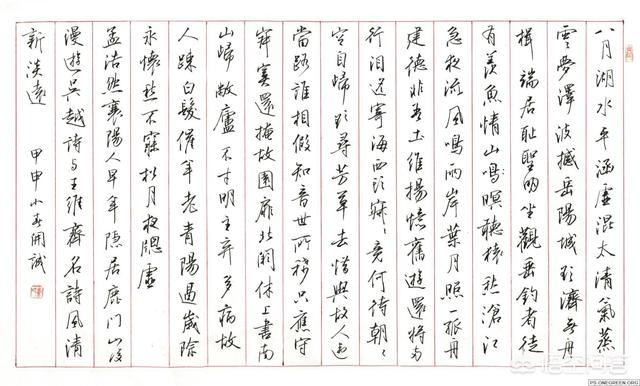 八月湖水平涵虛混太清氣蒸
雲夢澤波撼岳陽城欲濟無舟
楫端居恥聖明坐觀垂釣者徒
有羨魚情山鳴暝聽猿愁滄江
急夜流風鳴兩岸葉月照一孤舟
建德非吾土維揚憶舊遊還將兩
行淚遥寄海西頭寂〻竟何待朝〻
空自歸欲尋芳草去惜與故人違
當路誰相假知音世所稀只應守
寂寞還掩故園扉北闕休上書南
山歸敝廬不才明主棄多病故
人疎白髮催年老青陽逼歲除
永懷愁不寐松月夜窗虛
孟浩然襄陽人早年隱居鹿門山後
漫遊吳越詩與王維齊名詩風清
新淡遠 甲申小春開誠
PS.ONEGREEN.ORG